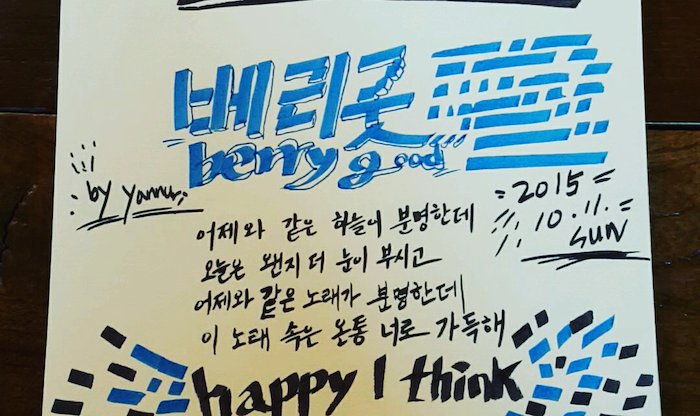 베리굿
berry good
by yammi
2015
10. 11.
SUN
어제와 같은 하늘이 분명한데
오늘은 왠지 더 눈이 부시고
어제와 같은 노래가 분명한데
이 노태 속은 온통 너로 가득해
happy I think